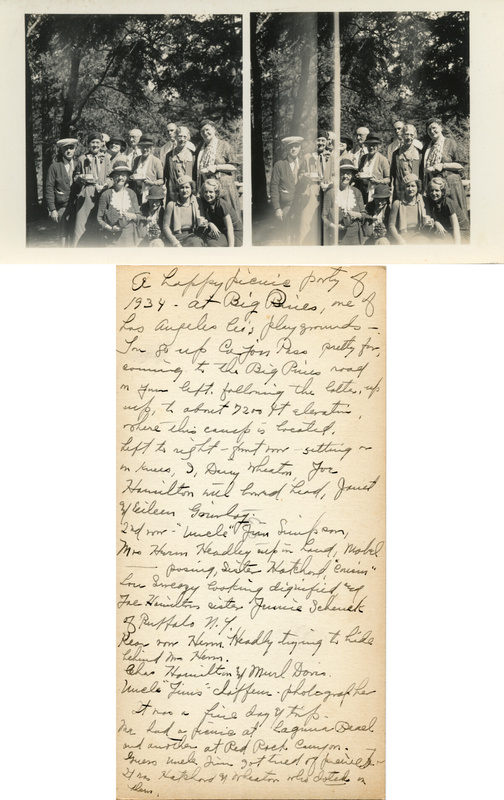 A happy picnic party of
1934 - at Big Pines, one of
Los Angeles Co's playgrounds -
You go up Cajon Pass pretty far,
coming to the Big Pines road
on your left. following the latter, up
up, to about 7200 ft elevation,
where this camp is located.
Left to right - front row - sitting or
on knees, I, Daisy Wheaton Joe
Hamilton with bowed head, Janet
& Eileen
2nd row - "Uncle" Jim Simpson,
Mrs Herm Headley cup in hand, Mabel
- posing, Sister Hatchord "cousin"
Lou Sweazy looking dignified and
Joe Hamiltons sister Jessie Schenck
of Buffalo N.Y.
Rear row Herm. Headly trying to hide
behind Mrs Herm.
Chas Hamilton & Murl Davis.
Uncle "Jims" chaffeur - photographer
It was a fine day & trip.
We had a picnic at Laguna Beach
and another at Red Rock Canyon.
Guess Uncle Jim got tired of picnics -
It was Hatchord & Wheaton who doted on
them.